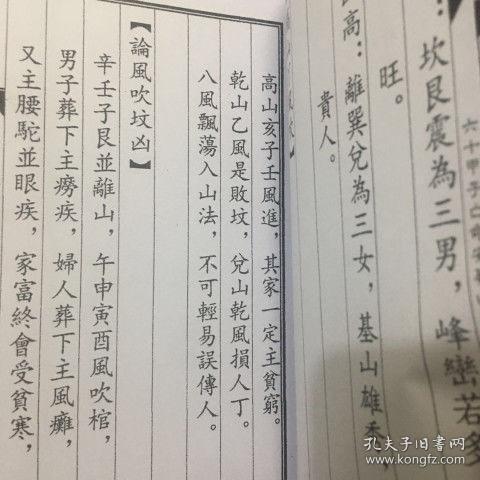 ：坎艮震為三男，峰巒若多
旺。
高：離巽兌為三女，基山雄秀
貴人。
高山亥子壬風進，其家一定主貧窮。
乾山乙風是敗墳，兌山乾風損人丁。
八風飄蕩入山法，不可輕易誤傳人。
【論風吹墳凶】
辛壬子艮並離山，午申寅酉風吹棺，
男子葬下主癆疾，婦人葬下主風癱，
又主腰駝並眼疾，家富終會受貧寒，
六十甲子亡命
孔夫子旧书网
www.kongfz.com